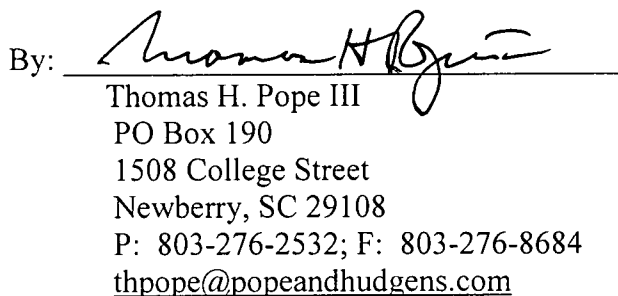 By: Thomas H Pope III
Thomas H. Pope III
PO Box 190
1508 College Street
Newberry, SC 29108
P: 803-276-2532; F: 803-276-8684
thpope@popeandhudgens.com